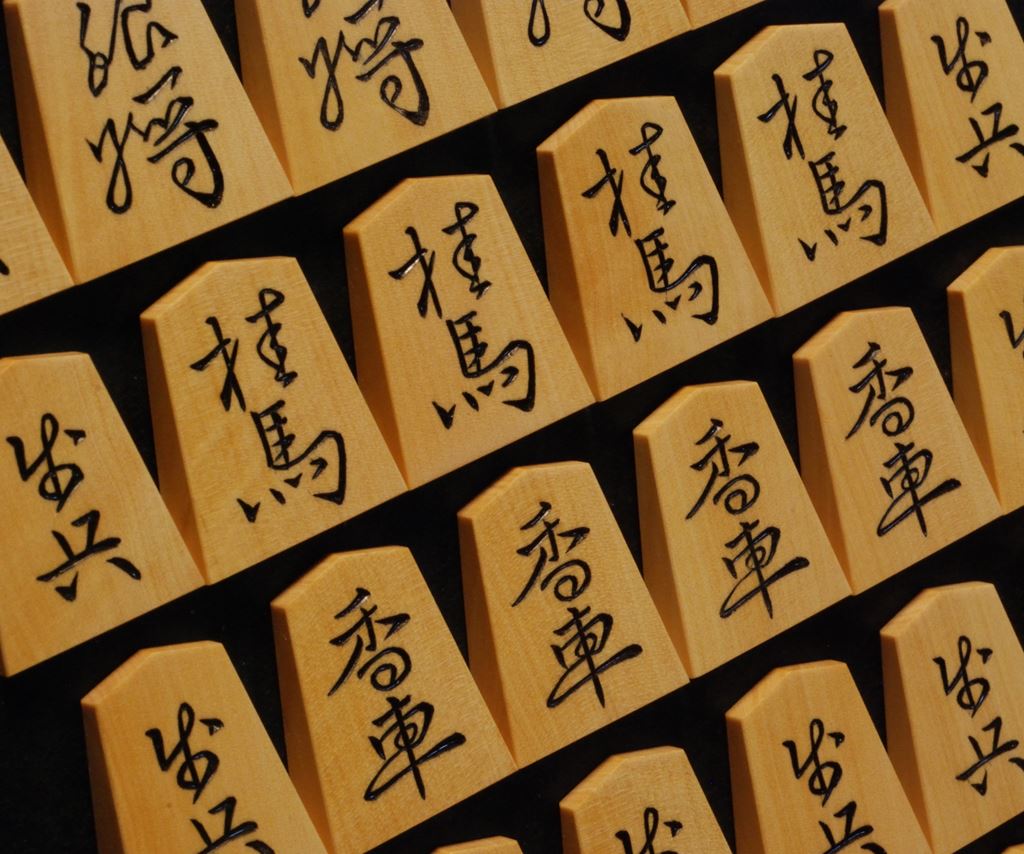 銀将
将
歩兵
桂馬
桂馬
桂馬
桂馬
歩兵
歩兵
香車
香車
香車
香車
歩
歩兵
歩兵